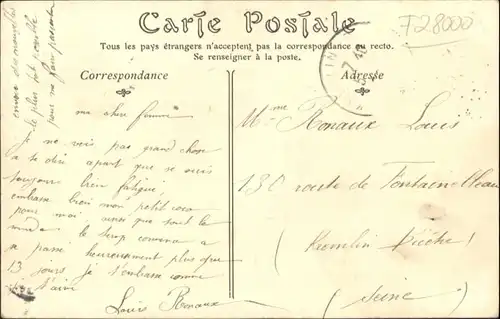 Carte Postale
Tous les pays étrangers n'acceptent pas la correspondance au recto.
Se renseigner à la poste.
Correspondance
Adresse
728000
ma cher femme
je ne vois pas grand chose
a se dire apart que se suis
toujours bien fatigué,
embrasse bien mon petit coco
pour moi, ainsi que tout le
monde le temp comence a
se passe heureusement plus que
13 jours je t'embrasse comme
je t'aime
Louis Ronaux
envoi des nouvelles
le plus tot possible
pour me faire passer
Mme Ronaux Louis
130 route de Fontainebleau
Kremlin Bicetre
(Seine)